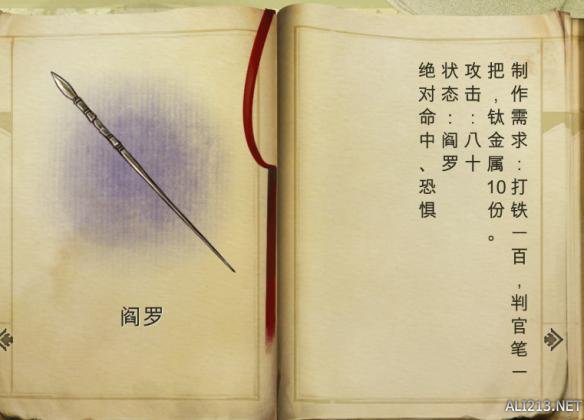 阎罗
制作需求：打铁一百，判官笔一
把，钛金属10份。
攻击：八十
状态：阎罗
绝对命中、恐惧
ALI213.NET